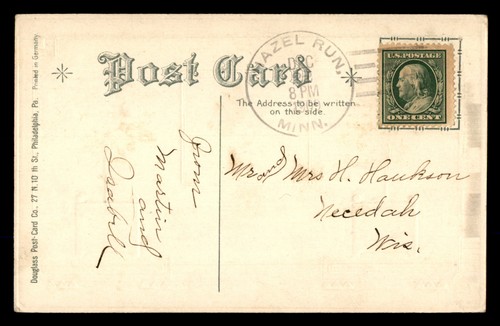 Post Card
The Address to be written
on this side.
HAZEL RUN,
DEC
8 PM
MINN.
U.S. POSTAGE
ONE CENT
From
Martin
and
Isabell
Mr and Mrs H. Haukson
Necedah
Wis.
Douglass Post-Card Co., 27 N. 10 th St., Philadelphia, Pa. Printed in Germany